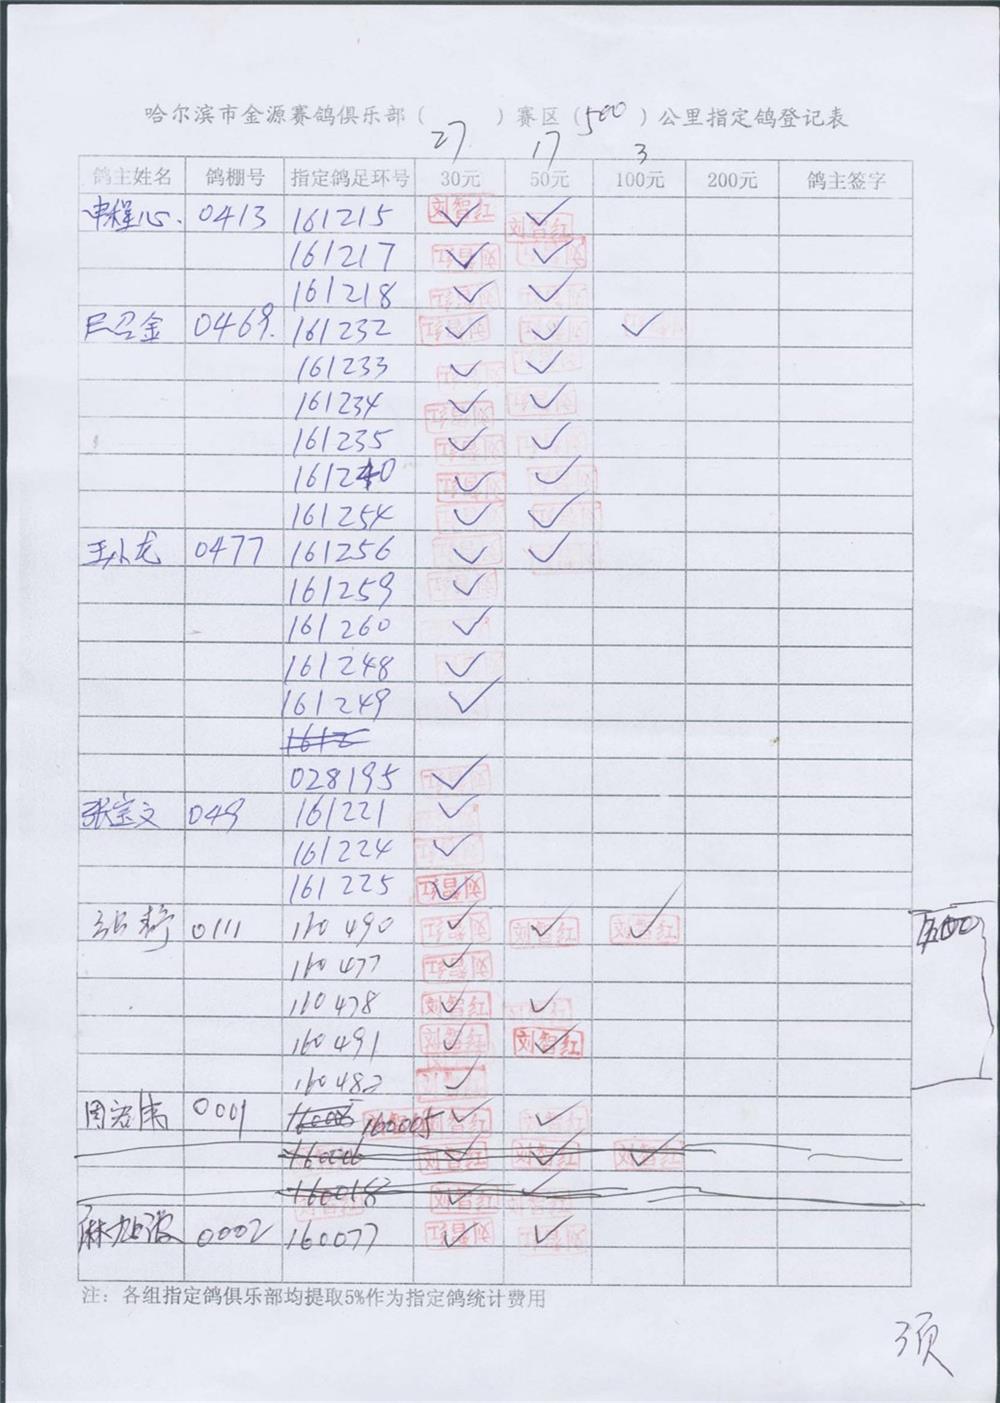 哈尔滨市金源赛鸽俱乐部（ ）赛区（500）公里指定鸽登记表
27 17 3
鸽主姓名 鸽棚号 指定鸽足环号 30元 50元 100元 200元 鸽主签字
申程心 0413 161215 刘智红 ✓ 刘智红 ✓
161217 ✓ ✓
161218 ✓ ✓
金 0469 161232 ✓ ✓ ✓
161233 ✓ ✓
161234 ✓ ✓
161235 ✓ ✓
161240 ✓ ✓
161254 ✓ ✓
王小龙 0477 161256 ✓ ✓
161259 ✓
161260 ✓
161248 ✓
161249 ✓
1612
028195 ✓
张宝文 049 161221 ✓
161224 ✓
161225 ✓
0111 160490 ✓ 刘智红 ✓ 刘智红 ✓
500
160477 ✓
160478 刘智红 ✓ ✓
160491 刘智红 ✓ 刘智红 ✓
160482 刘智红 ✓
周宏伟 0001 160005 刘智红 ✓ ✓
160006 刘智红 ✓ 刘智红 ✓ 刘智红 ✓
160018 刘智红 ✓ ✓
0002 160077 ✓ ✓
注：各组指定鸽俱乐部均提取5%作为指定鸽统计费用
3页